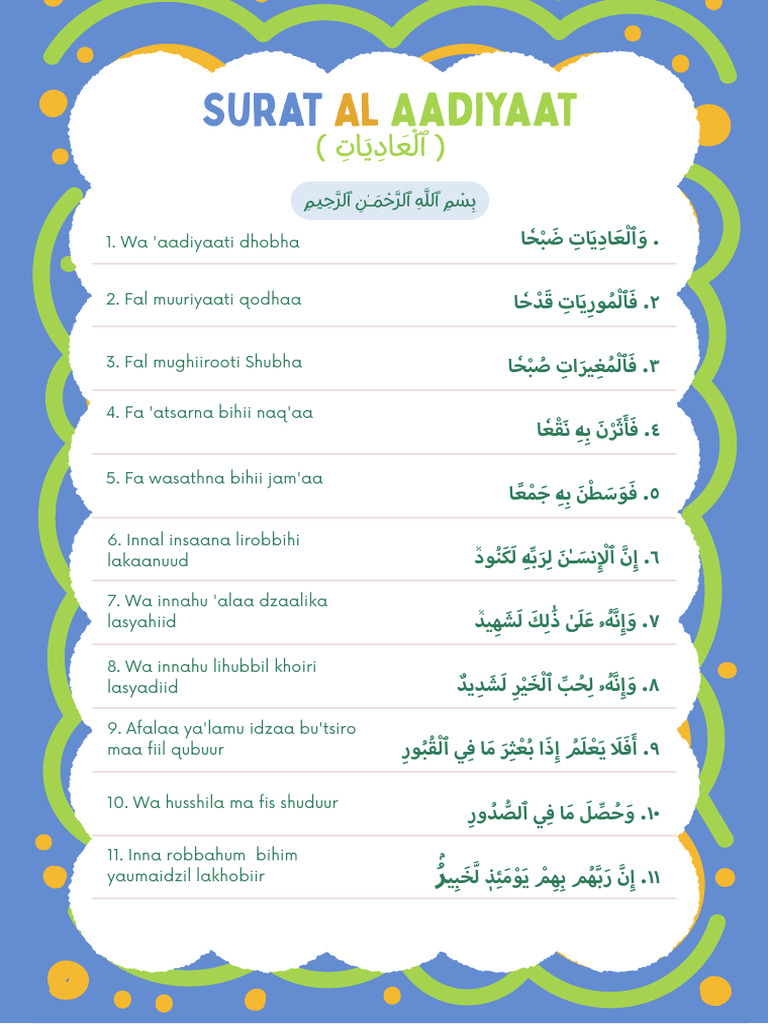 SURAT AL AADIYAAT
( ٱلْعَادِيَاتِ )
بِسْمِ ٱللَّهِ ٱلرَّحْمَـٰنِ ٱلرَّحِيمِ
1. Wa 'aadiyaati dhobha
. وَٱلْعَادِيَاتِ ضَبْحًا
2. Fal muuriyaati qodhaa
٢. فَٱلْمُورِيَاتِ قَدْحًا
3. Fal mughiirooti Shubha
٣. فَٱلْمُغِيرَاتِ صُبْحًا
4. Fa 'atsarna bihii naq'aa
٤. فَأَثَرْنَ بِهِۦ نَقْعًا
5. Fa wasathna bihii jam'aa
٥. فَوَسَطْنَ بِهِۦ جَمْعًا
6. Innal insaana lirobbihi
lakaanuud
٦. إِنَّ ٱلْإِنسَـٰنَ لِرَبِّهِۦ لَكَنُودٌ
7. Wa innahu 'alaa dzaalika
lasyahiid
٧. وَإِنَّهُۥ عَلَىٰ ذَٰلِكَ لَشَهِيدٌ
8. Wa innahu lihubbil khoiri
lasyadiid
٨. وَإِنَّهُۥ لِحُبِّ ٱلْخَيْرِ لَشَدِيدٌ
9. Afalaa ya'lamu idzaa bu'tsiro
maa fiil qubuur
٩. أَفَلَا يَعْلَمُ إِذَا بُعْثِرَ مَا فِي ٱلْقُبُورِ
10. Wa husshila ma fis shuduur
١٠. وَحُصِّلَ مَا فِي ٱلصُّدُورِ
11. Inna robbahum  bihim
yaumaidzil lakhobiir
١١. إِنَّ رَبَّهُم بِهِمْ يَوْمَئِذٍ لَّخَبِيرٌۢ